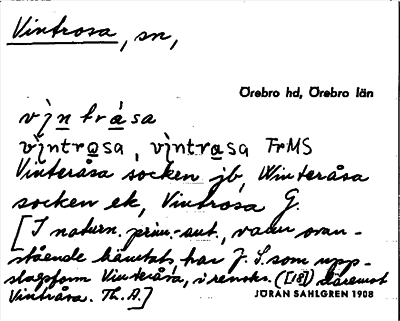 Vintrosa, sn,
Örebro hd, Örebro län
vi̯n trå̀sa
vi̯ntrασa, vi̯ntrασa FrMS
Vinteråsa socken jb, Winteråsa
socken ek, Vintrosa G.
[I naturn. prim.-aut., varur ovan-
stående hämtats har J. S. som upp-
slagsform Vinteråsa, i renskr. ([18]) däremot
Vintråsa. Th. A.]
JÖRAN SAHLGREN 1908